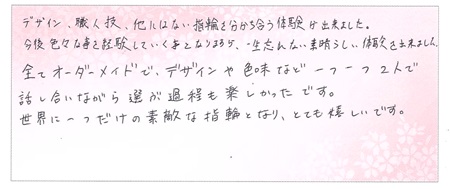 デザイン、職人技、他にはない指輪を分かち合う体験が出来ました。
今後色々な事を経験していく事となりますが、一生忘れない素晴らしい体験を出来ました。
全てオーダーメイドで、デザインや色味など一つ一つ2人で
話し合いながら選ぶ過程も楽しかったです。
世界に一つだけの素敵な指輪となり、とても嬉しいです。